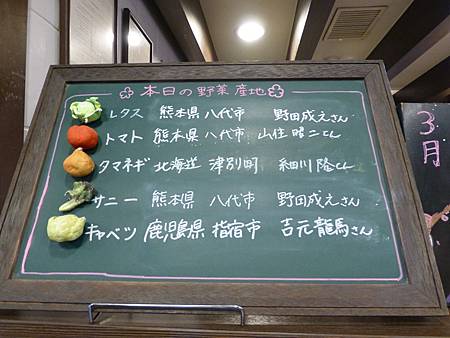 本日の野菜産地
レタス 熊本県 八代市 野田成えさん
トマト 熊本県 八代市 山住昭二さん
タマネギ 北海道 津別町 細川隆さん
サニー 熊本県 八代市 野田成えさん
キャベツ 鹿児島県 指宿市 吉元龍馬さん
3月